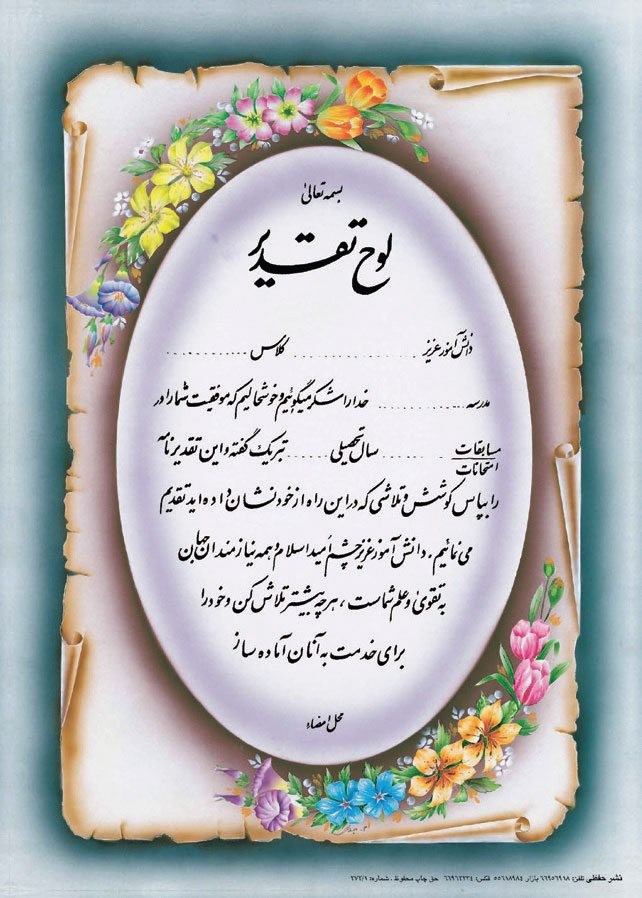 بسمه تعالی
لوح تقدیر
دانش آموز عزیز .................... کلاس ..............
مدرسه .............. خدا را شکر میگوئیم و خوشحالیم که موفقیت شما را در
مسابقات
امتحانات
...... سال تحصیلی ...... تبریک گفته و این تقدیرنامه
را بپاس کوشش و تلاشی که در این راه از خود نشان داده اید تقدیم
می نمائیم . دانش آموز عزیز چشم امید اسلام و همه نیازمندان جهان
به تقوی و علم شماست ، هرچه بیشتر تلاش کن و خود را
برای خدمت به آنان آماده ساز
محل امضاء
نشر حفظی تلفن: ۶۶۹۵۶۹۱۸ بازار ۵۵۶۱۸۹۸۴ فکس: ۶۶۹۶۲۲۳۴ حق چاپ محفوظ . شماره: ۲۷۲/۱